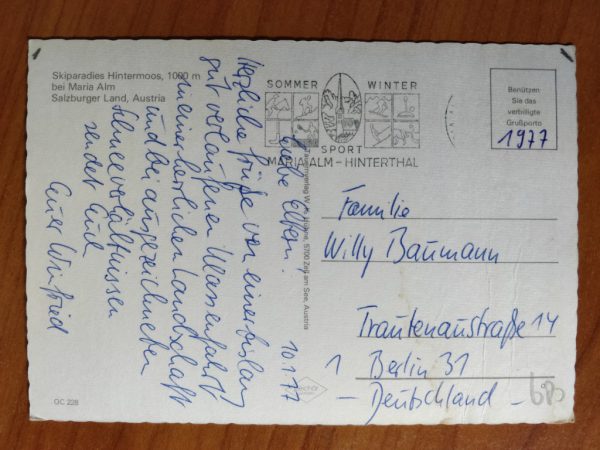 Skiparadies Hintermoos, 1000 m
bei Maria Alm
Salzburger Land, Austria
10.1.77
Liebe Eltern!
Herzliche Grüße von einer bislang
gut verlaufenen Klassenfahrt
in einer herrlichen Landschaft
und bei ausgezeichneten
Schneeverhältnissen
sendet Euch
Euer Winfried
SOMMER WINTER
SPORT
MARIA ALM - HINTERTHAL
Benützen
Sie das
verbilligte
Grußporto
1977
5700 Zell am See, Austria
Familie
Willy Baumann
Trautenaustraße 14
1 Berlin 31
- Deutschland -
GC 228